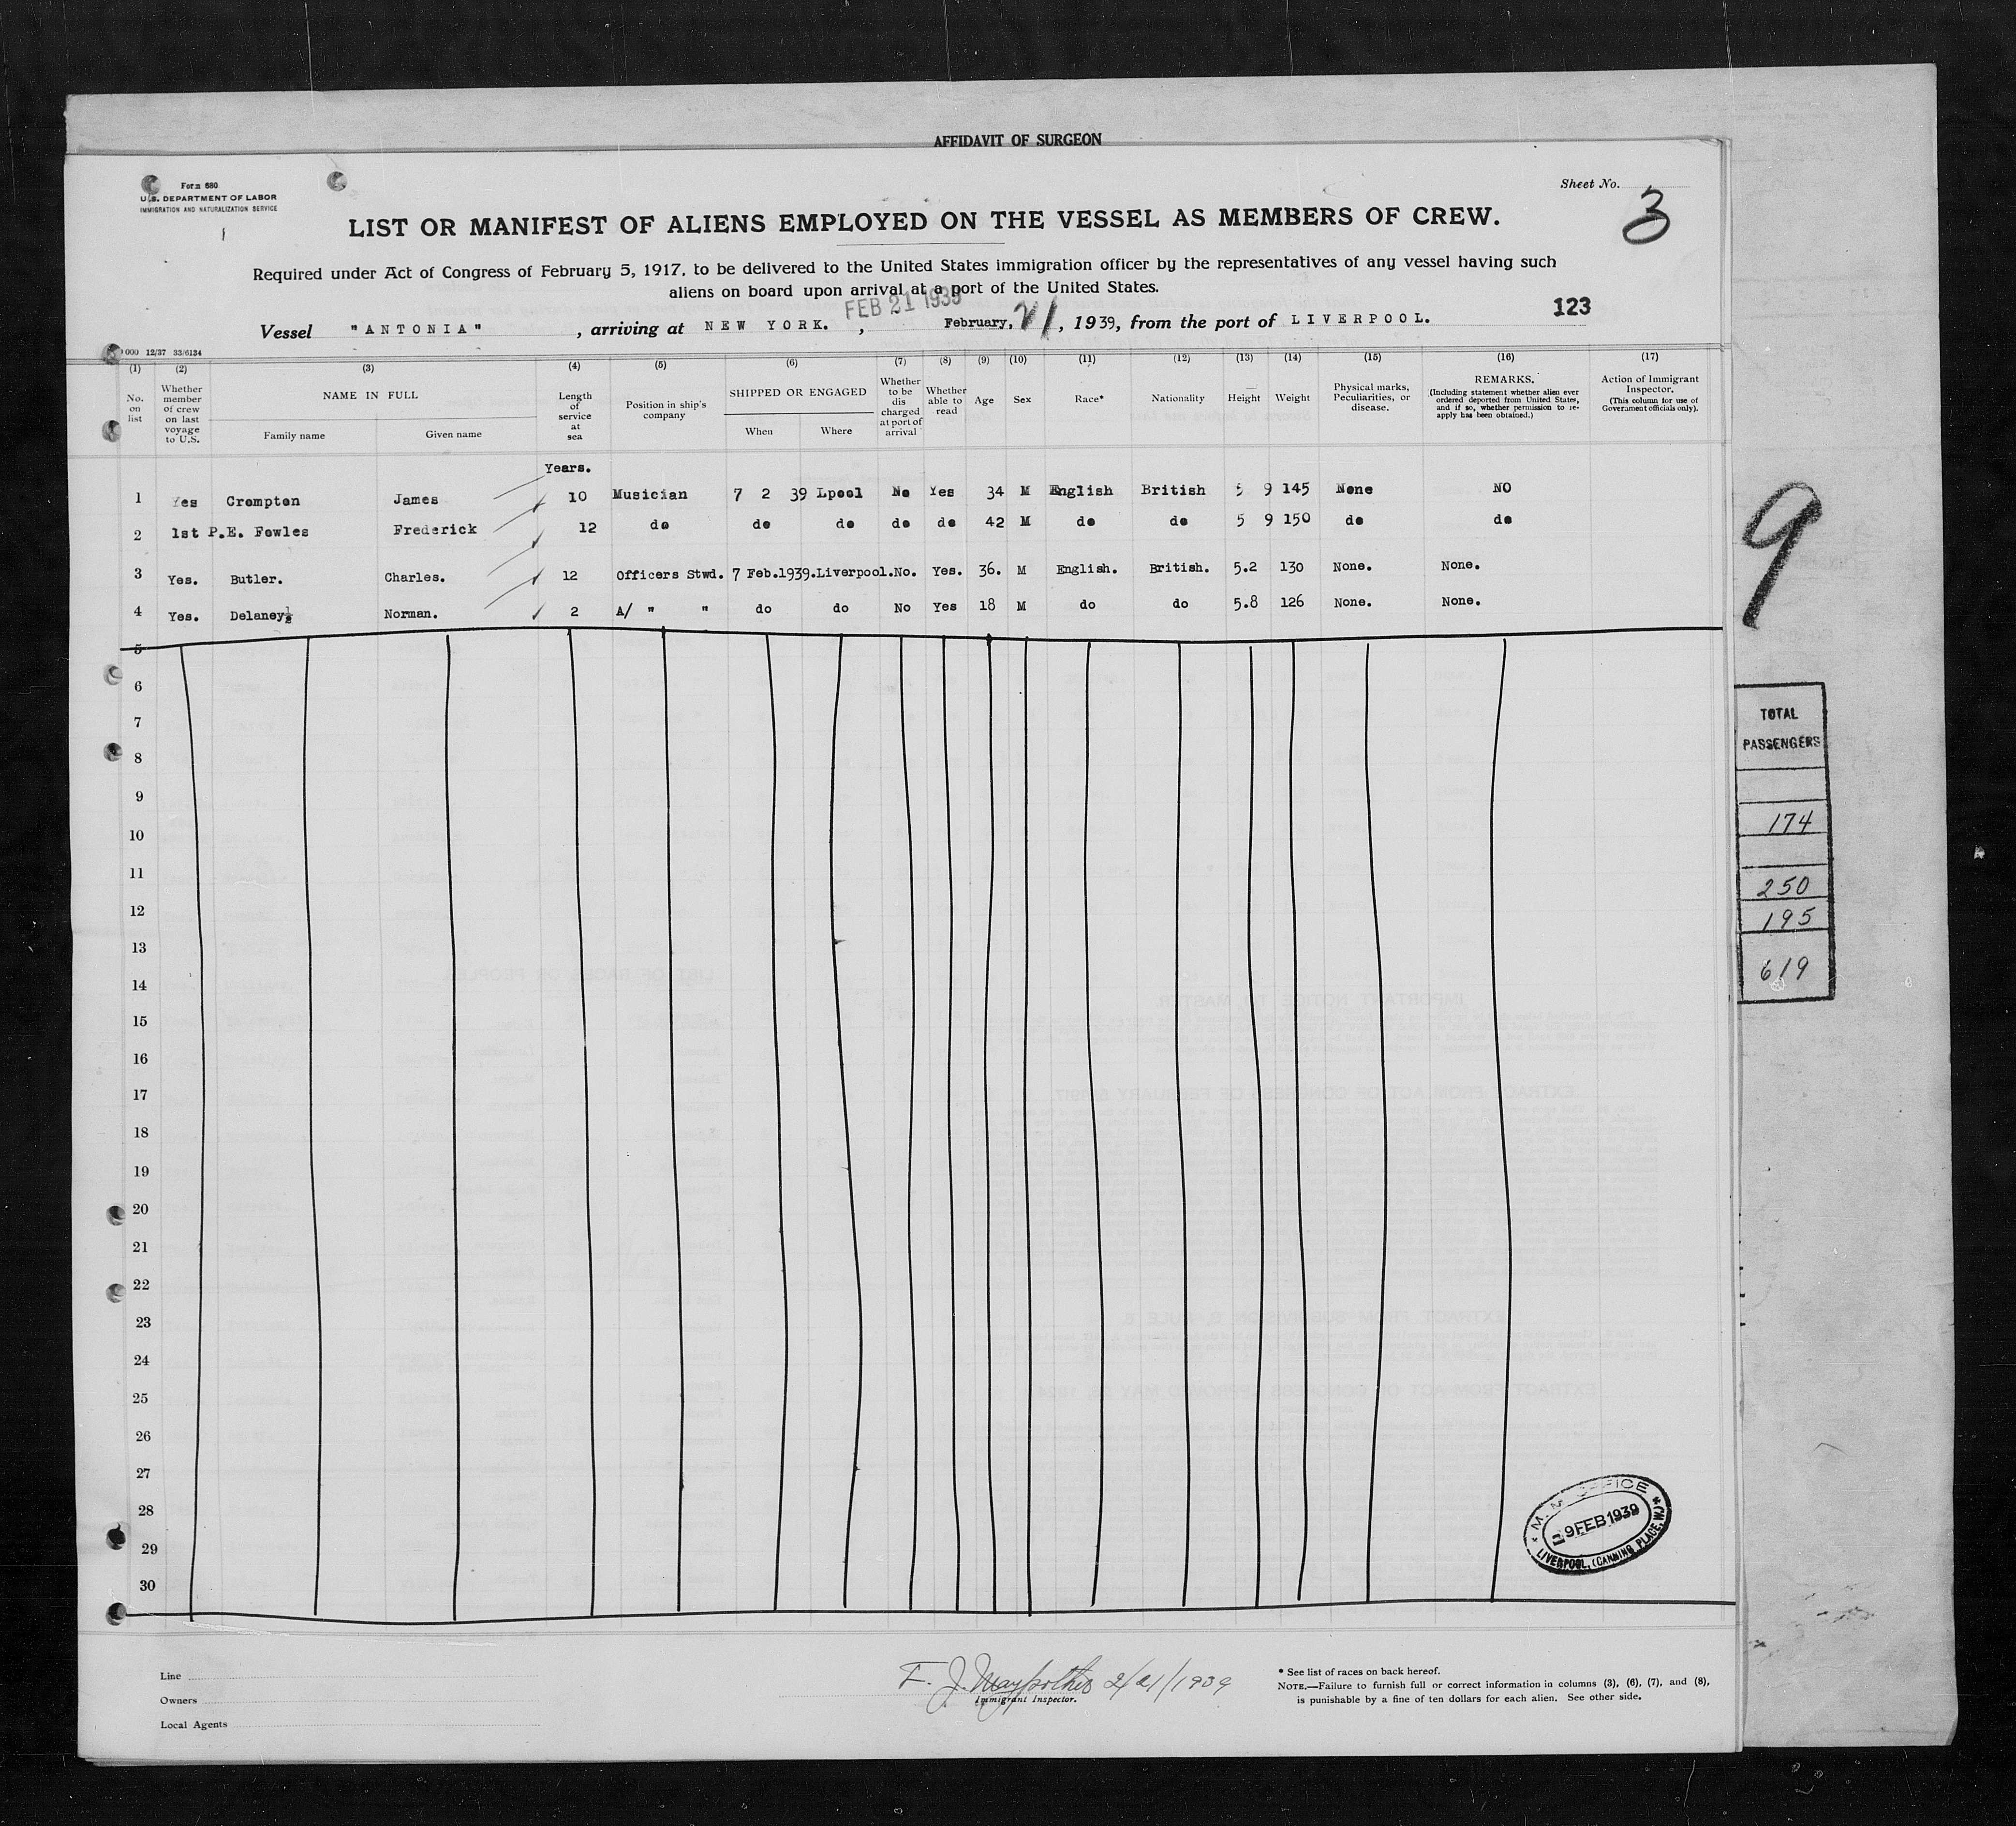 AFFIDAVIT OF SURGEON
Form 680
U.S. DEPARTMENT OF LABOR
IMMIGRATION AND NATURALIZATION SERVICE
Sheet No. 3
LIST OR MANIFEST OF ALIENS EMPLOYED ON THE VESSEL AS MEMBERS OF CREW.
Required under Act of Congress of February 5, 1917, to be delivered to the United States immigration officer by the representatives of any vessel having such
aliens on board upon arrival at a port of the United States.
FEB 21 1939
123
Vessel "ANTONIA", arriving at NEW YORK., February, 21, 1939, from the port of LIVERPOOL.
000 12/37 33/6134
(1) (2) (3) (4) (5) (6) (7) (8) (9) (10) (11) (12) (13) (14) (15) (16) (17)
No. on list
Whether member of crew on last voyage to U.S.
NAME IN FULL
Family name Given name
Length of service at sea
Position in ship's company
SHIPPED OR ENGAGED
When Where
Whether to be dis charged at port of arrival
Whether able to read
Age
Sex
Race*
Nationality
Height
Weight
Physical marks, Peculiarities, or disease.
REMARKS.
(Including statement whether alien ever ordered deported from United States, and if so, whether permission to re-apply has been obtained.)
Action of Immigrant Inspector.
(This column for use of Government officials only).
Years.
1 Yes Crompton James 10 Musician 7 2 39 Lpool No Yes 34 M English British 5 9 145 None NO
2 1st P.E. Fowles Frederick 12 do do do do do 42 M do do 5 9 150 do do
3 Yes. Butler. Charles. 12 Officers Stwd. 7 Feb.1939. Liverpool. No. Yes. 36. M English. British. 5.2 130 None. None.
4 Yes. Delaney Norman. 2 A/ " " do do No Yes 18 M do do 5.8 126 None. None.
5
6
7
8
9
10
11
12
13
14
15
16
17
18
19
20
21
22
23
24
25
26
27
28
29
30
9
TOTAL
PASSENGERS
174
250
195
619
M. M. OFFICE
9 FEB 1939
LIVERPOOL, (CANNING PLACE, W.)
Line
Owners
Local Agents
F. J. 2/21/1939
Immigrant Inspector.
* See list of races on back hereof.
NOTE.—Failure to furnish full or correct information in columns (3), (6), (7), and (8),
is punishable by a fine of ten dollars for each alien. See other side.